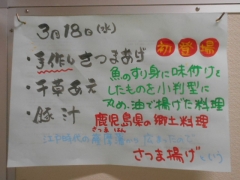 3月18日(水)
・手作りさつまあげ
・千草あえ
・豚汁
初登場
魚のすり身に味付けを
したものを小判型に
丸め、油で揚げた料理
鹿児島県の郷土料理
江戸時代の
さつま揚げ